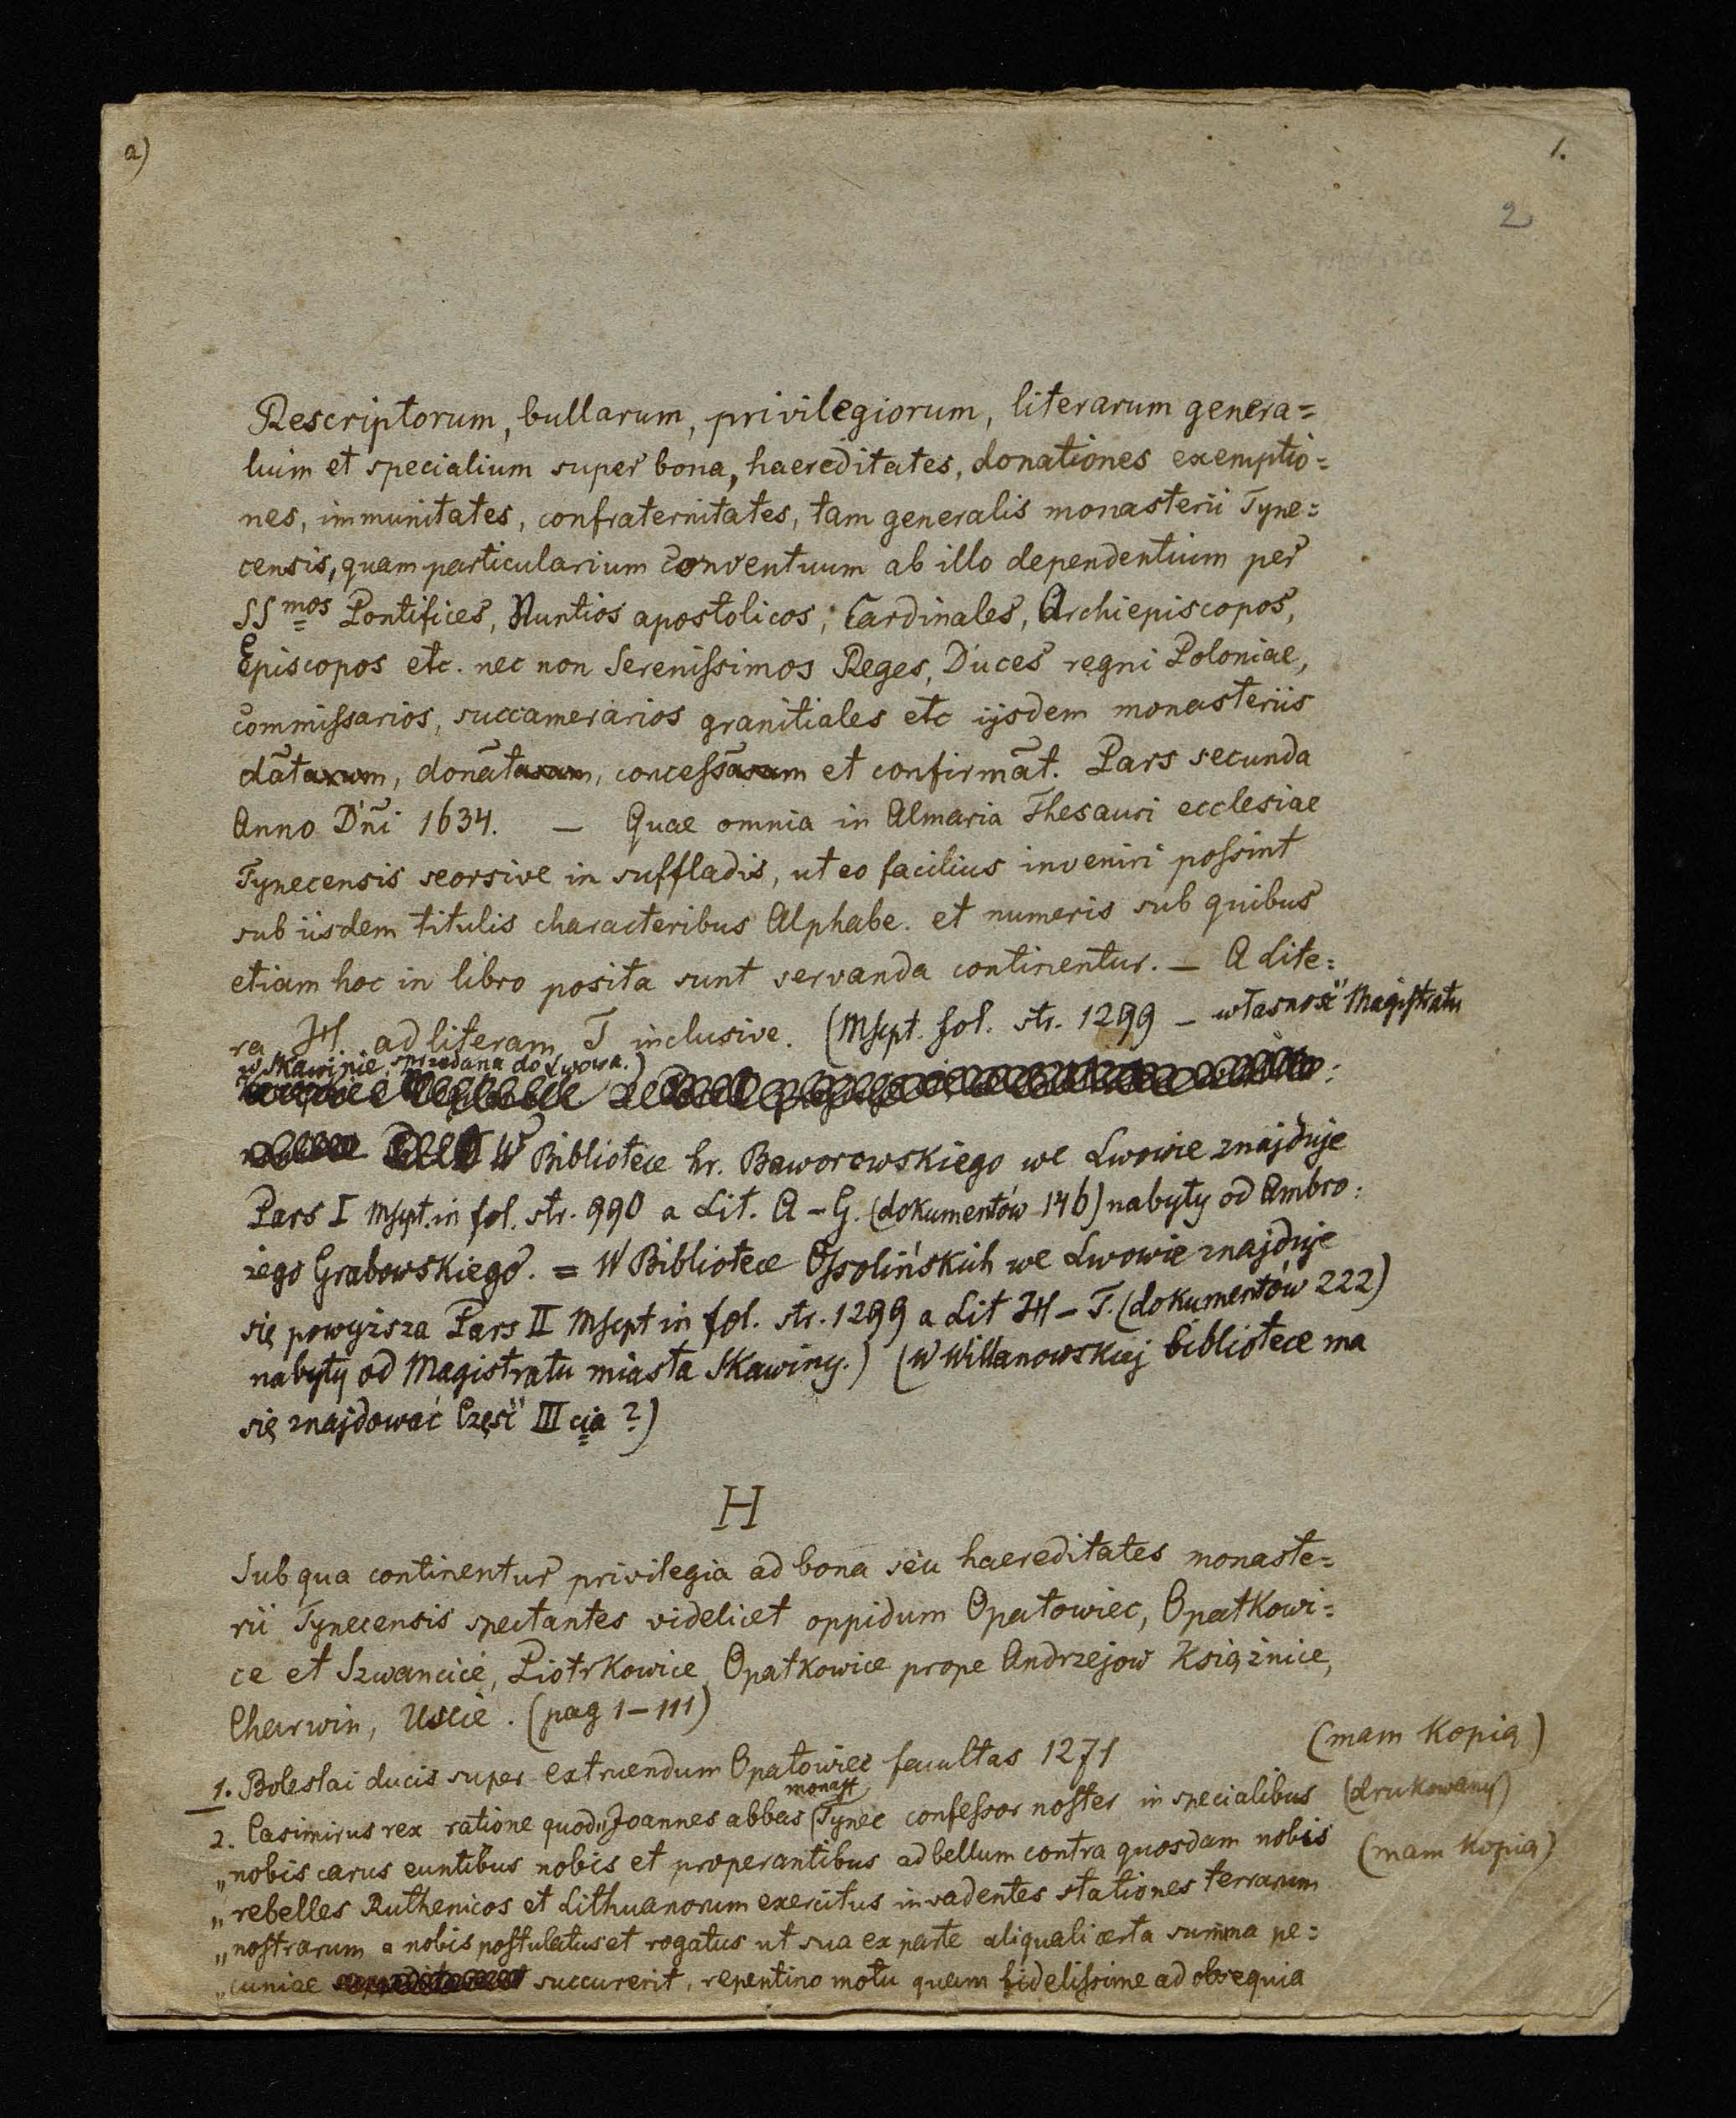 a)
1.
2
Rescriptorum, bullarum, privilegiorum, literarum genera=
lium et specialium super bona, haereditates, donationes exemptio=
nes, immunitates, confraternitates, tam generalis monasterii Tyne=
censis, quam particularium conventuum ab illo dependentium per
SSmos Pontifices, Nuntios apostolicos, Cardinales, Archiepiscopos,
Episcopos etc. nec non Serenissimos Reges, Duces regni Poloniae,
commissarios, succamerarios granitiales etc ijsdem monasteriis
datarum, donatarum, concessarum et confirmāt. Pars secunda
Anno Dñi 1634. — Quae omnia in Almaria Thesauri ecclesiae
Tynecensis seorsive in suffladis, ut eo facilius inveniri possint
sub iisdem titulis characteribus Alphabe. et numeris sub quibus
etiam hoc in libro posita sunt servanda continentur. — A lite=
ra H ad literam T inclusive. (Mscpt. fol. str. 1299 — własność Magistratu
w Skawinie, sprzedana do Lwowa.)
W Bibliotece hr. Baworowskiego we Lwowie znajduje
Pars I Mscpt. in fol. str. 990 a Lit. A – G. (dokumentów 146) nabyty od Ambro:
żego Grabowskiego. = W Bibliotece Ossolińskich we Lwowie znajduje
się powyższa Pars II Mscpt in fol. str. 1299 a Lit H – T. (dokumentów 222)
nabyty od Magistratu miasta Skawiny.) (W Willanowskiej bibliotece ma
się znajdować Część III cia ?)
H
Sub qua continentur privilegia ad bona seu haereditates monaste=
rii Tynecensis spectantes videlicet oppidum Opatowiec, Opatkowi=
ce et Szwancice, Piotrkowice, Opatkowice prope Andrzejow Książnice,
Charwin, Uście. (pag 1 – 111)
1. Boleslai ducis super extruendum Opatowiec facultas 1271 (mam kopią)
2. Casimirus rex ratione quod „Joannes abbas monast Tynec confessor noster in specialibus (drukowany)
„nobis carus euntibus nobis et properantibus ad bellum contra quosdam nobis (mam kopią)
„rebelles Ruthenicos et Lithuanorum exercitus invadentes stationes terrarum
„nostrarum a nobis postulatus et rogatus ut sua ex parte aliquali certa summa pe=
„cuniae succurerit, repentino motu quam fidelissime ad obsequia